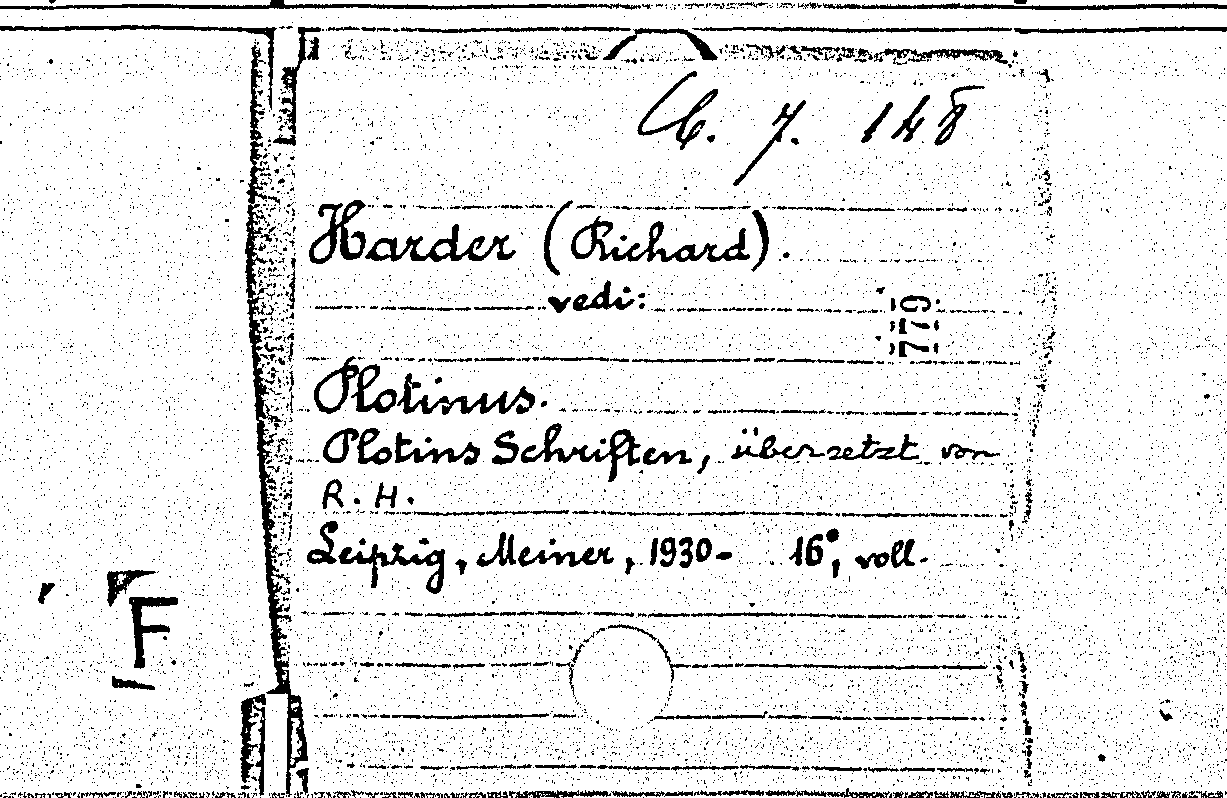 7. 148
Harder (Richard).
vedi:
779
Plotinus.
Plotins Schriften, übersetzt von
R. H.
Leipzig, Meiner, 1930- 16°, voll.
F